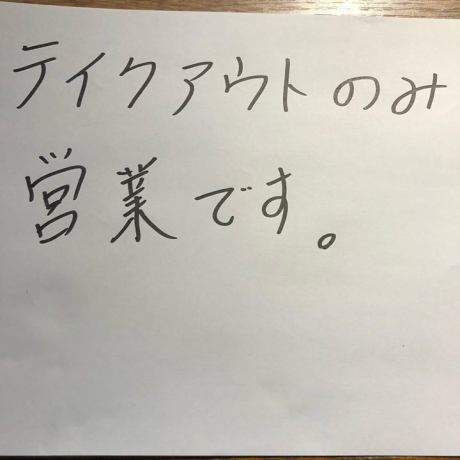 テイクアウトのみ
営業です。